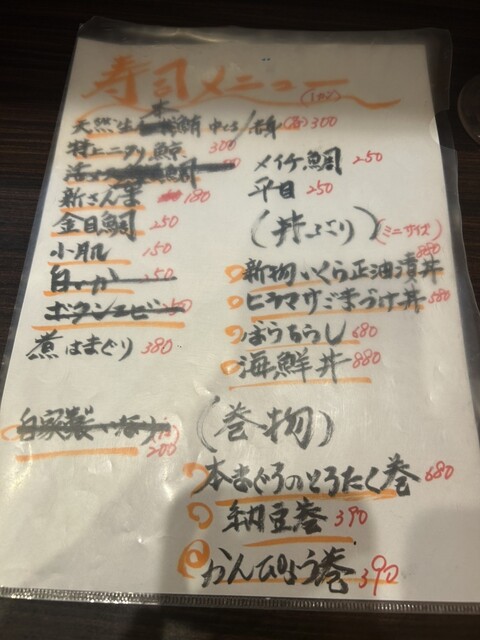 寿司メニュー (1カン)
本
天然生鮪 中とろ/赤身(各)300
特上ニタリ鯨 300
鯛
新さんま 180
金目鯛 250
小肌 150
白イカ 250
ボタンエビ
煮はまぐり 380
自家製いなり (1コ) 200
メイチ鯛 250
平目 250
(丼ぶり) (ミニサイズ)
新物いくら正油漬丼 880
ヒラマサごまづけ丼 580
ばらちらし 680
海鮮丼 880
(巻物)
本まぐろのとろたく巻 680
納豆巻 390
かんぴょう巻 390